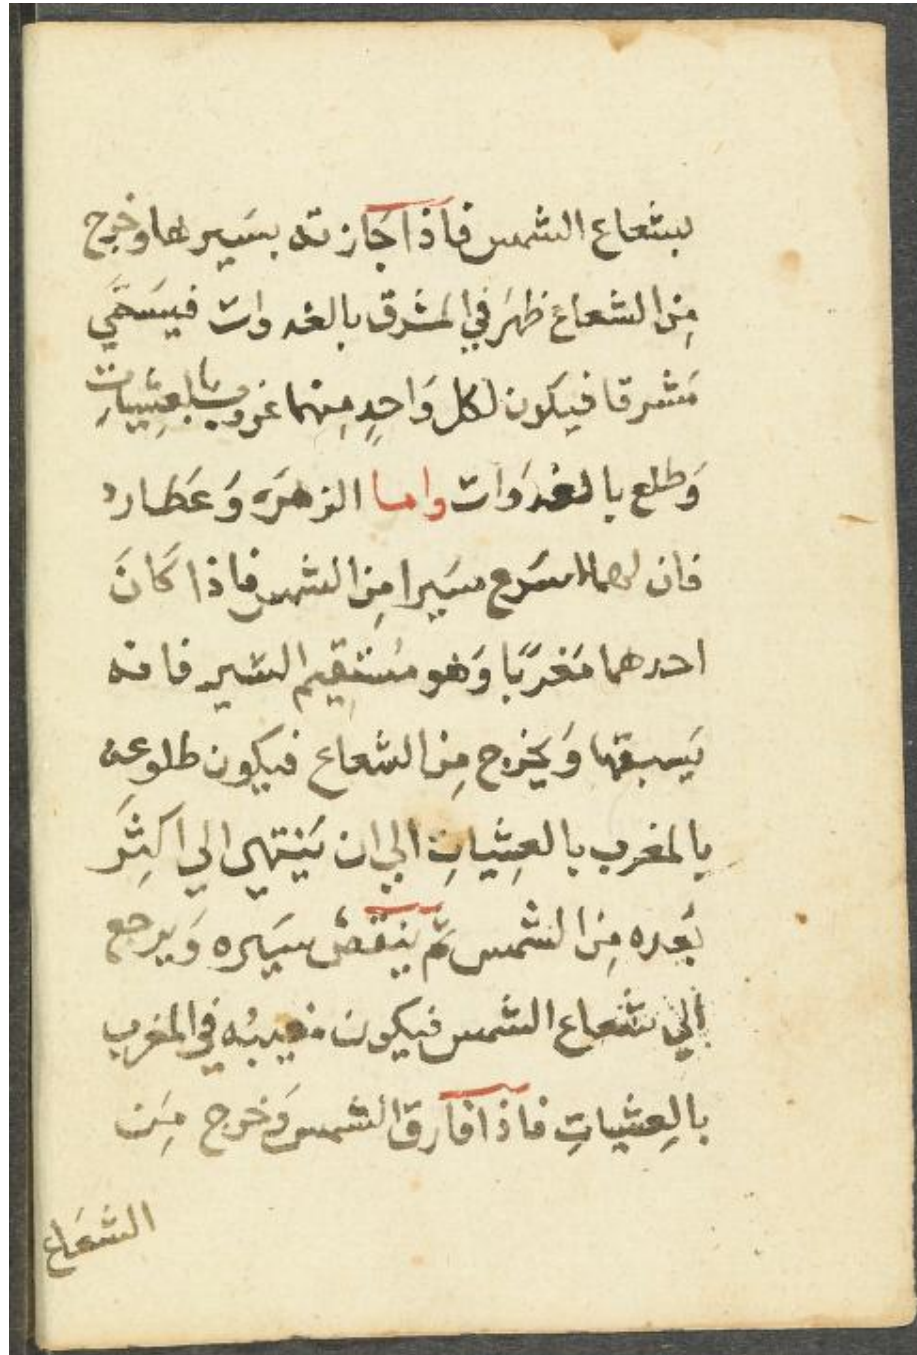 بشعاع الشمس فاذا جازته بسيرها وخرج
مِن الشعاع ظهَر في المشرق بالغدوات فيسَمَّي
مَشرقا فيكون لكل وَاحدٍ مِنهما غروب بالعِشياتِ
وَطلع بالغدوَات واما الزهرَه وَعَطارد
فان لهما اسرَع سَيرا مِن الشمس فاذا كَانَ
احدهما مَغربًا وَهو مُستقِيم السَير فانه
يَسبقها وَيخرج مِن الشعاع فيكون طلوعه
بالمغرب بالعِشياتِ الي ان يَنتهي الي اكثَر
بُعده مِن الشمس ثم ينقص سَيره وَيرجع
الي شعاع الشمس فيكون مغيبُه في المغرب
بالعِشياتِ فاذا فارق الشمس وَخرج مِن
الشعَاع